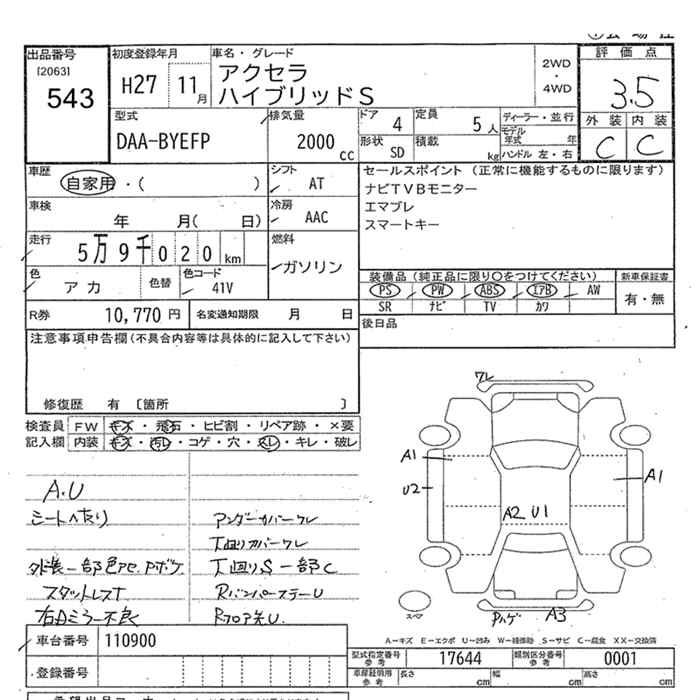 出品番号 初度登録年月 車名・グレード 評価点
[2063]
543 H27 11月 アクセラ ハイブリッドS 2WD・4WD 3.5
外装 内装
C C
型式 排気量 ドア 定員 ディーラー・並行
DAA-BYEFP 2000cc 4 5人 モデル年式 年
形状 積載
SD kg ハンドル 左・右
車歴 シフト セールスポイント (正常に機能するものに限ります)
自家用・( ) AT ナビTVBモニター
エマブレ
車検 冷房 スマートキー
年 月( 日) AAC
走行 燃料
5万9千020km ガソリン
色 色替 色コード 装備品(純正品に限り○をつけてください) 新車保証書
アカ 41V PS PW ABS エアB AW 有・無
SR ナビ TV カワ
R券 10,770円 名変通知期限 月 日 後日品
注意事項申告欄(不具合内容等は具体的に記入して下さい)
修復歴 有 [箇所 ]
検査員 FW キズ・飛石・ヒビ割・リペア跡・×要
記入欄 内装 キズ・汚れ・コゲ・穴・スレ・キレ・破レ
ワレ
A1
U2
A1
A2 U1
A.U
シートへたり アンダーカバーワレ
T廻りカバーワレ
外装一部色アセ.Pボケ T廻りS一部C
スタットレスT RバンパーステーU
右Dミラー不良 Rフロア先U.
スペア PハゲA3
A-キズ E-エクボ U-凹み W-補修跡 S-サビ C-腐食 XX-交換済
車台番号 110900 型式指定番号 参考 17644 類別区分番号 参考 0001
登録番号 車庫証明用 参考 長さ cm 幅 cm 高さ cm